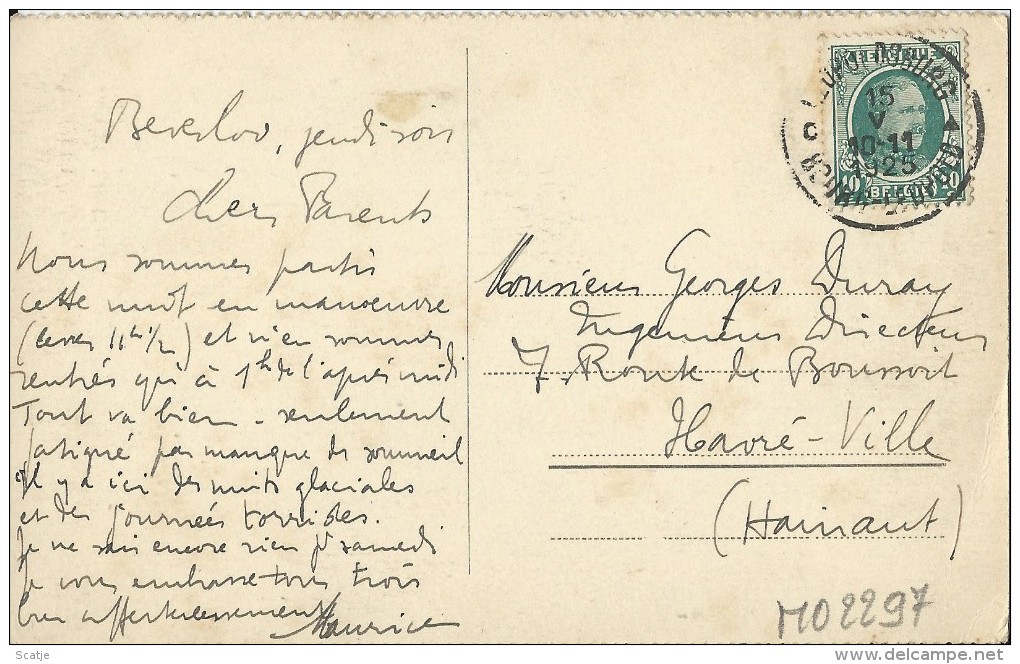 Beverloo, jeudi soir
Chers Parents
Nous sommes partis
cette nuit en manoeuvre
(lever 11h 1/2) et n'en sommes
rentrés qu'à 1h de l'après midi
Tout va bien - seulement
fatigué par manque de sommeil
Il y a ici des nuits glaciales
et des journées torrides.
Je ne sais encore rien pr samedi
Je vous embrasse tous trois
bien affectueusement
Maurice
BELGIQUE
10 10
BELGIE
LEOPOLDSBURG
15
V
10-11
1925
C
BOURG-LEOPOLD
Monsieur Georges Duray
Ingénieur Directeur
7. Route de Boussoit
Havré-Ville
(Hainaut)
M02297
Scatje
delcampe.net